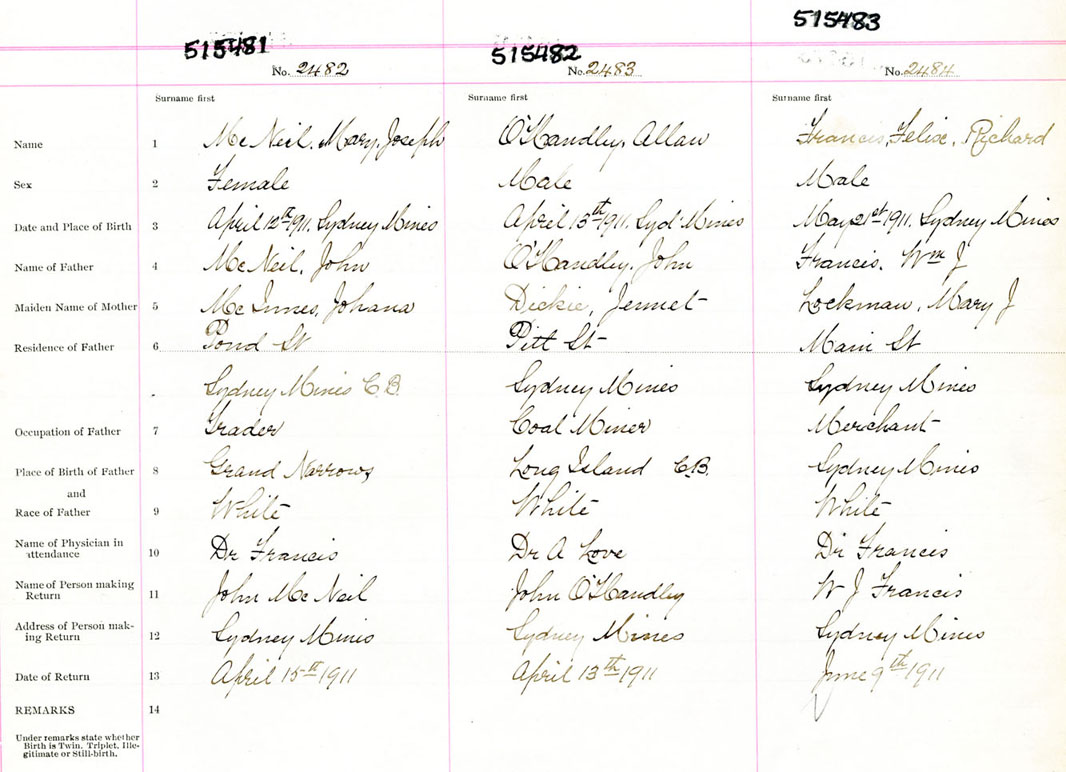 515481 515482 515483
No. 2482 No. 2483 No. 2484
Surname first Surname first Surname first
Name 1 McNeil, Mary, Joseph O'Handley, Allan Francis, Felix, Richard
Sex 2 Female Male Male
Date and Place of Birth 3 April 12th 1911, Sydney Mines April 13th 1911, Syd' Mines May 21st 1911, Sydney Mines
Name of Father 4 McNeil, John O'Handley, John Francis, Wm J
Maiden Name of Mother 5 McInnes, Johana Dickie, Jennet Lockman, Mary J
Residence of Father 6 Pond St Pitt St Main St
Sydney Mines C.B. Sydney Mines Sydney Mines
Occupation of Father 7 Trader Coal Miner Merchant
Place of Birth of Father 8 Grand Narrows Long Island C.B. Sydney Mines
and
Race of Father 9 White White White
Name of Physician in
attendance 10 Dr Francis Dr A Love Dr Francis
Name of Person making
Return 11 John McNeil John O'Handley W J Francis
Address of Person mak-
ing Return 12 Sydney Mines Sydney Mines Sydney Mines
Date of Return 13 April 15th 1911 April 13th 1911 June 9th 1911
REMARKS 14
Under remarks state whether
Birth is Twin, Triplet, Ille-
gitimate or Still-birth.